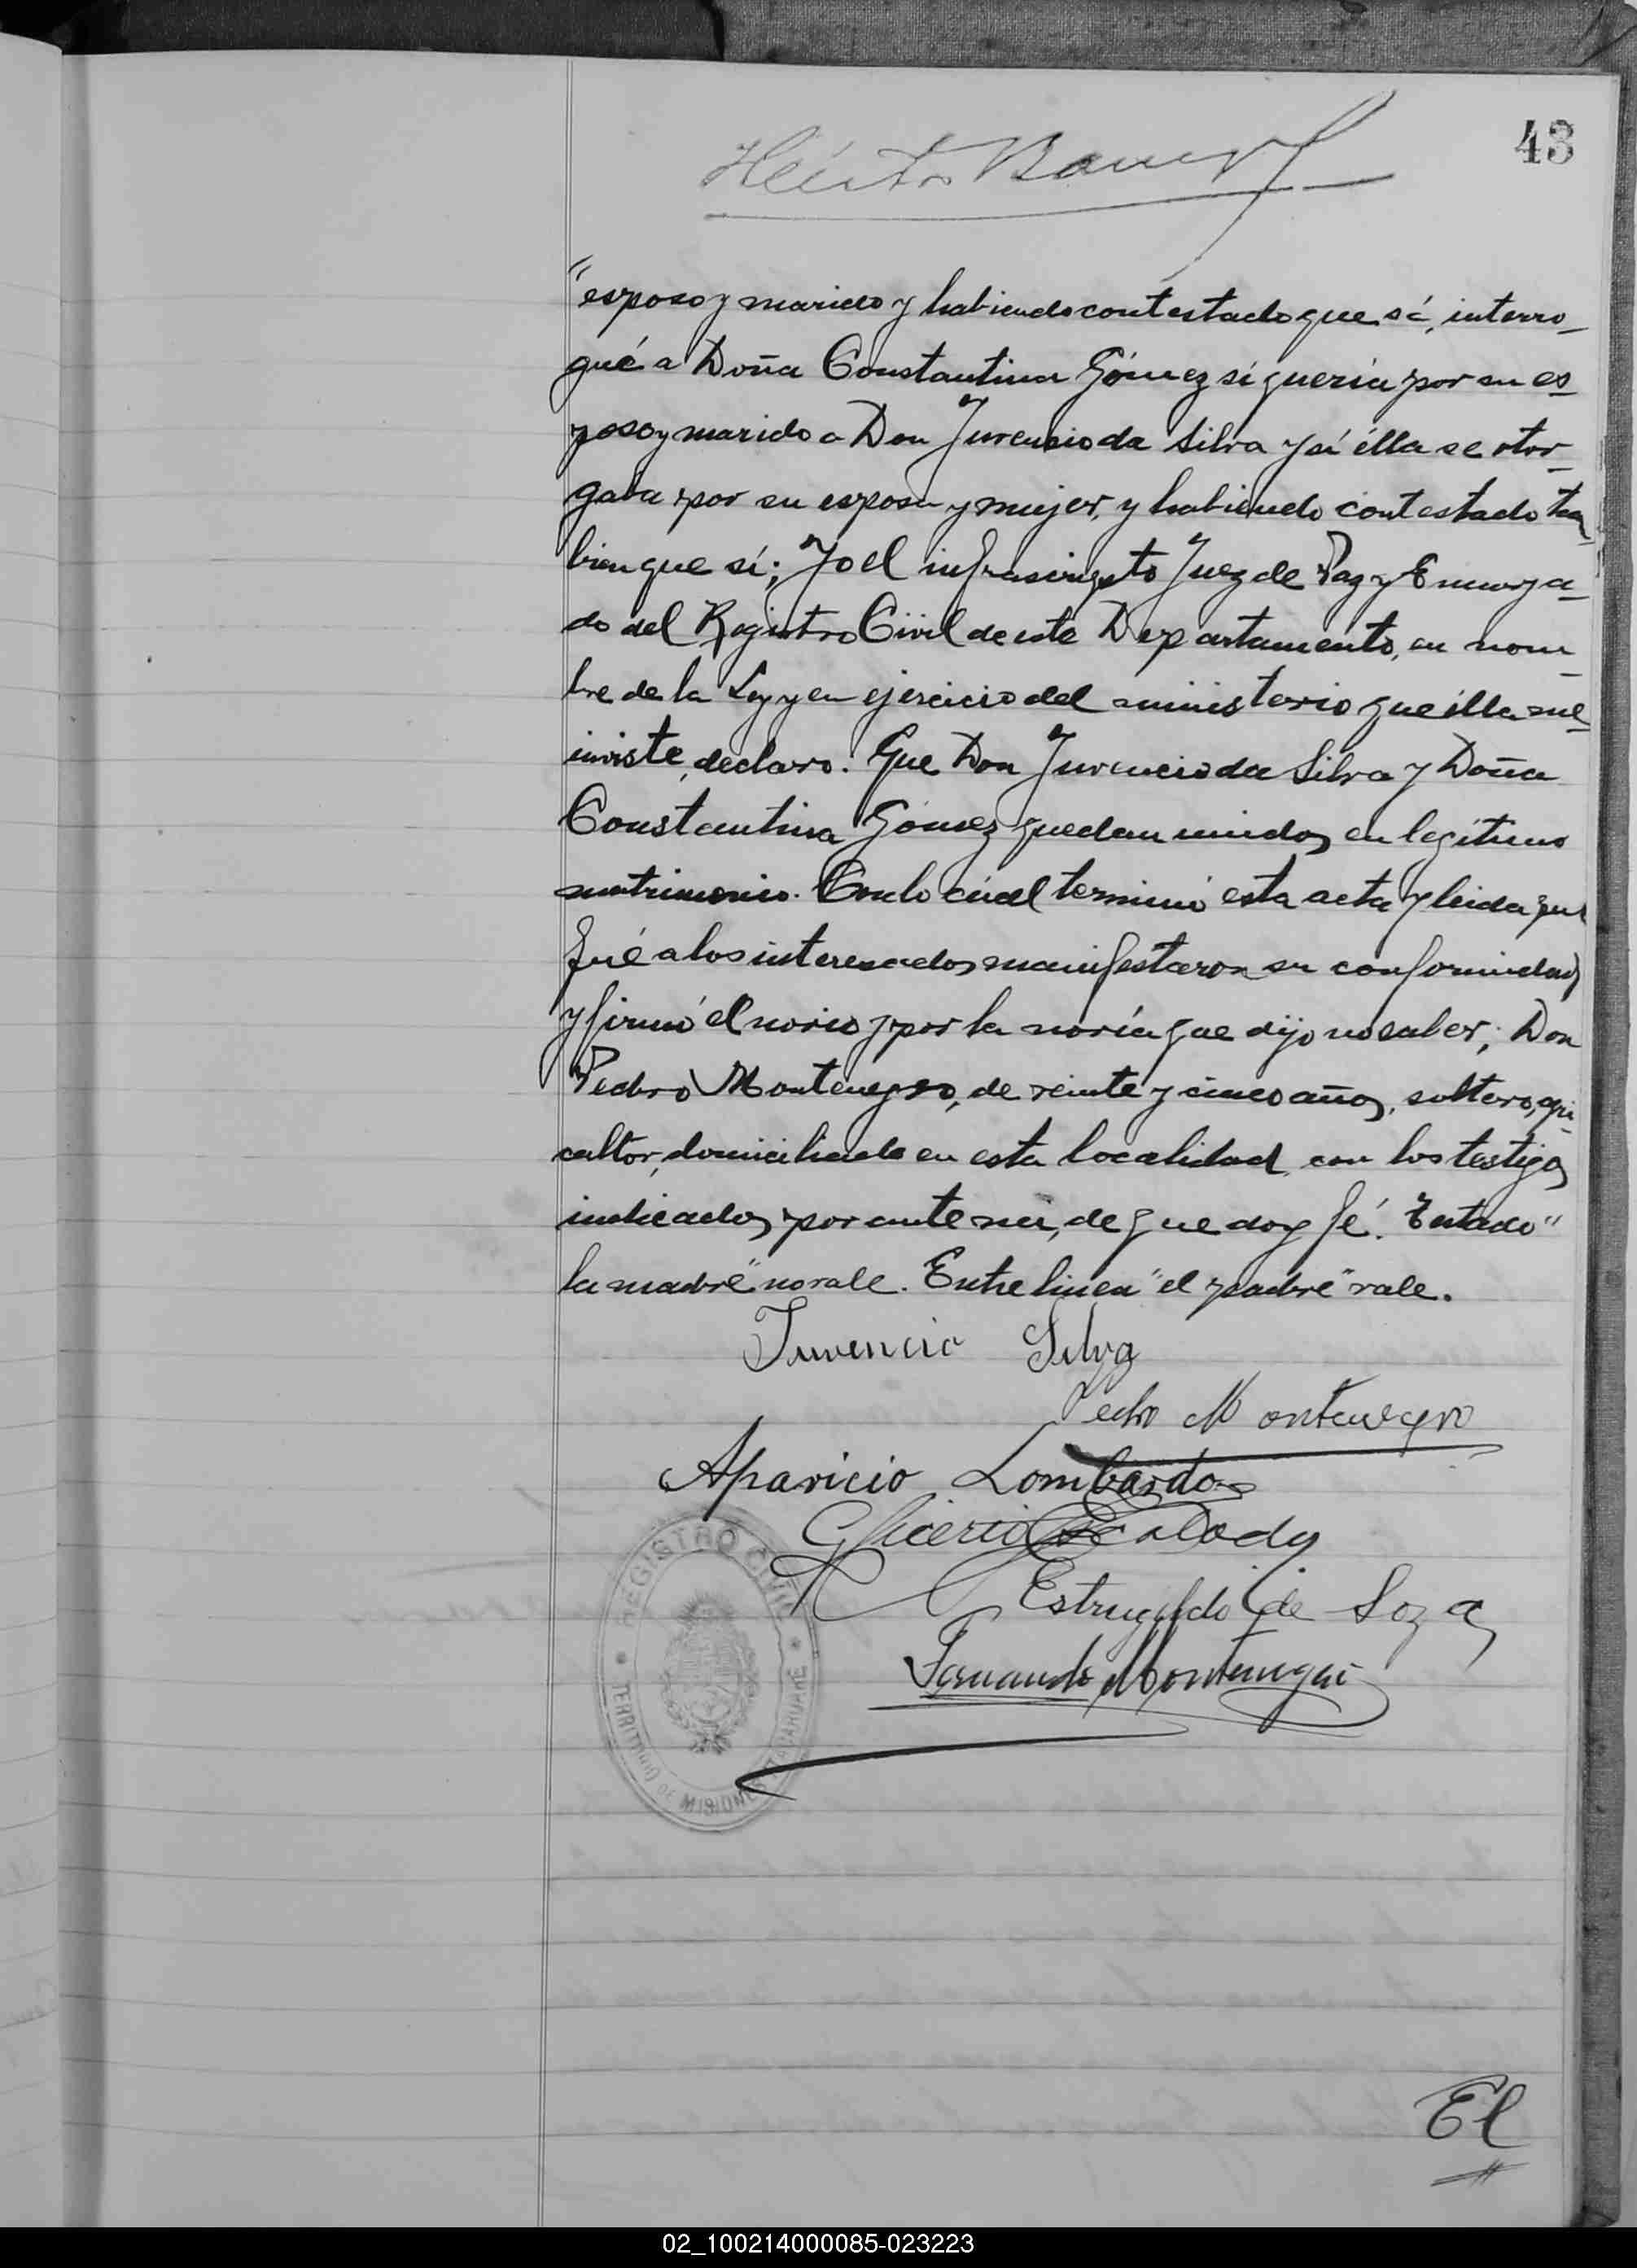 43
Héctor
"esposo y marido y habiendo contestado que sí, interro-
gué a Doña Constantina Gómez sí quería por su es-
poso y marido a Don Juvencio da Silva y sí élla se otor-
gaba por su esposa y mujer, y habiendo contestado tam-
bien que sí; Yo el infrascripto Juez de Paz y Encarga-
do del Registro Civil de este Departamento, en nom-
bre de la Ley y en ejercicio del ministerio que élla me
inviste, declaro: Que Don Juvencio da Silva y Doña
Constantina Gómez quedan unidos en legítimo
matrimonio. Con lo cúal terminó esta acta y leida que
fué a los interesados manifestaron su conformidad
y firmó el novio y por la novia que dijo no saber; Don
Pedro Montenegro, de veinte y cinco años, soltero, agri-
cultor, domiciliado en esta localidad, con los testigos
indicados, por ante mi, de que doy fé. Testado"
la madre" no vale. Entre linea "el padre" vale.
Juvencio Silva
Pedro Montenegro
Aparicio Lombardo
Glicerio
de Soza
Fernando Montenegro
REGISTRO CIVIL
TERRITORIO DE MISIONES
El
02_100214000085-023223